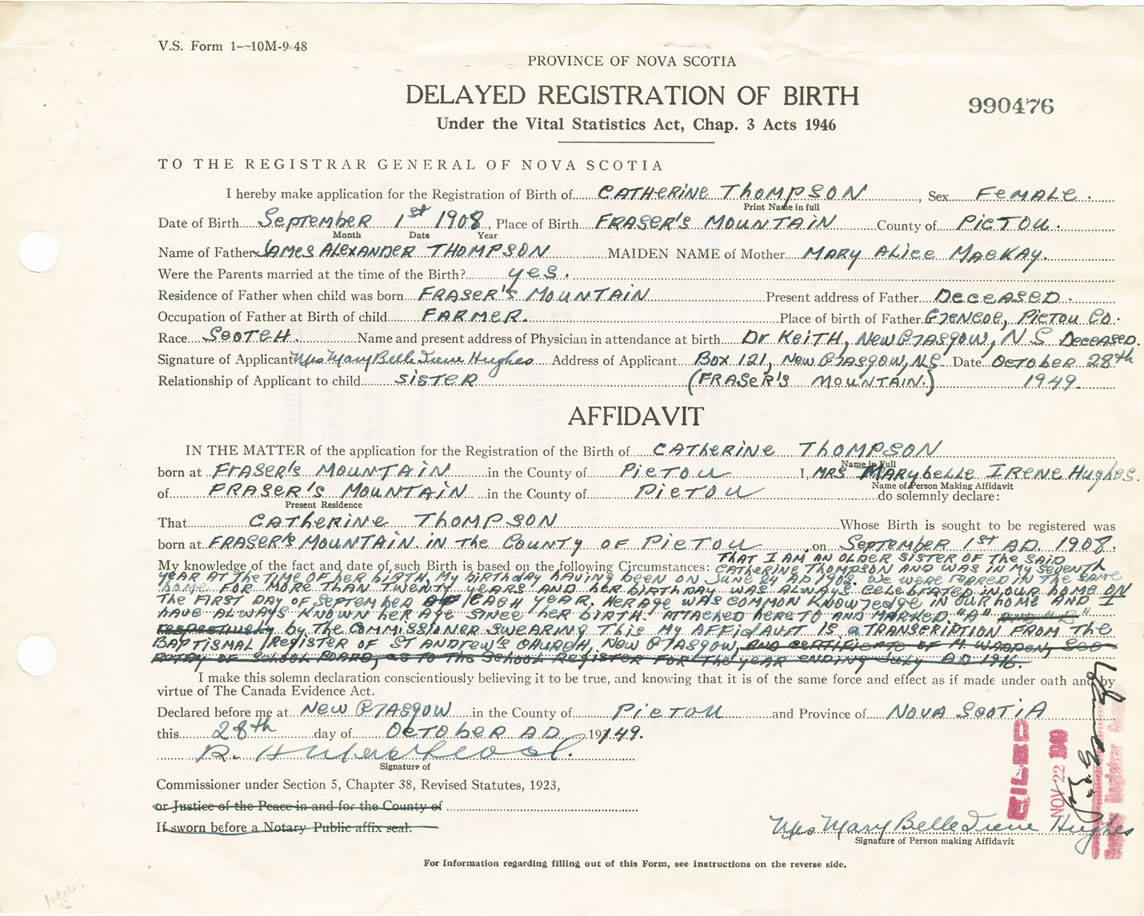 V.S. Form 1—10M-9-48
PROVINCE OF NOVA SCOTIA
DELAYED REGISTRATION OF BIRTH
990476
Under the Vital Statistics Act, Chap. 3 Acts 1946
TO THE REGISTRAR GENERAL OF NOVA SCOTIA
I hereby make application for the Registration of Birth of CATHERINE THOMPSON, Sex FEMALE.
Print Name in full
Date of Birth September 1st 1908, Place of Birth FRASER'S MOUNTAIN County of PICTOU.
Month Date Year
Name of Father JAMES ALEXANDER THOMPSON MAIDEN NAME of Mother MARY ALICE MACKAY.
Were the Parents married at the time of the Birth? yes.
Residence of Father when child was born FRASER'S MOUNTAIN Present address of Father DECEASED.
Occupation of Father at Birth of child FARMER. Place of birth of Father GLENCOE, PICTOU CO.
Race SCOTCH. Name and present address of Physician in attendance at birth Dr KEITH, NEW GLASGOW, N.S DECEASED.
Signature of Applicant Mrs Mary Belle Irene Hughes Address of Applicant Box 121, NEW GLASGOW, NS Date OCTOBER 28th
Relationship of Applicant to child SISTER (FRASER'S MOUNTAIN.) 1949.
AFFIDAVIT
IN THE MATTER of the application for the Registration of Birth of CATHERINE THOMPSON
Name in Full
born at FRASER'S MOUNTAIN in the County of PICTOU I, MRS MARYBELLE IRENE HUGHES.
Name of Person Making Affidavit
of FRASER'S MOUNTAIN in the County of PICTOU do solemnly declare:
Present Residence
That CATHERINE THOMPSON Whose Birth is sought to be registered was
born at FRASER'S MOUNTAIN IN THE COUNTY OF PICTOU on SEPTEMBER 1ST AD. 1908.
My knowledge of the fact and date of such Birth is based on the following Circumstances: THAT I AM AN OLDER SISTER OF THE SAID
CATHERINE THOMPSON AND WAS IN MY SEVENTH
YEAR AT THE TIME OF HER BIRTH, MY BIRTHDAY HAVING BEEN ON JUNE 24 AD WE WERE REARED IN THE SAME
HOME FOR MORE THAN TWENTY YEARS AND HER BIRTHDAY WAS ALWAYS CELEBRATED IN OUR HOME ON
THE FIRST DAY OF SEPTEMBER EACH YEAR. HER AGE WAS COMMON KNOWLEDGE IN OUR HOME AND I
HAVE ALWAYS KNOWN HER AGE SINCE HER BIRTH. ATTACHED HERETO AND MARKED "A"
respectively by THE COMMISSIONER SWEARING THIS MY AFFIDAVIT IS a TRANSCRIPTION FROM THE
BAPTISMAL REGISTER OF ST ANDREW'S CHURCH, NEW GLASGOW, AND CERTIFICATE OF SEC-
RETARY OF SCHOOL BOARD, AS TO THE SCHOOL REGISTER FOR THE YEAR ENDING JULY AD 1916.
I make this solemn declaration conscientiously believing it to be true, and knowing that it is of the same force and effect as if made under oath and by
virtue of The Canada Evidence Act.
Declared before me at NEW GLASGOW in the County of PICTOU and Province of NOVA SCOTIA
this 28th day of OCTOBER AD. 1949.
Signature of
Commissioner under Section 5, Chapter 38, Revised Statutes, 1923,
or Justice of the Peace in and for the County of
If sworn before a Notary Public affix seal.
FILED
NOV 22 1949
Mrs Mary Belle Irene Hughes
Signature of Person making Affidavit
For Information regarding filling out of this Form, see instructions on the reverse side.